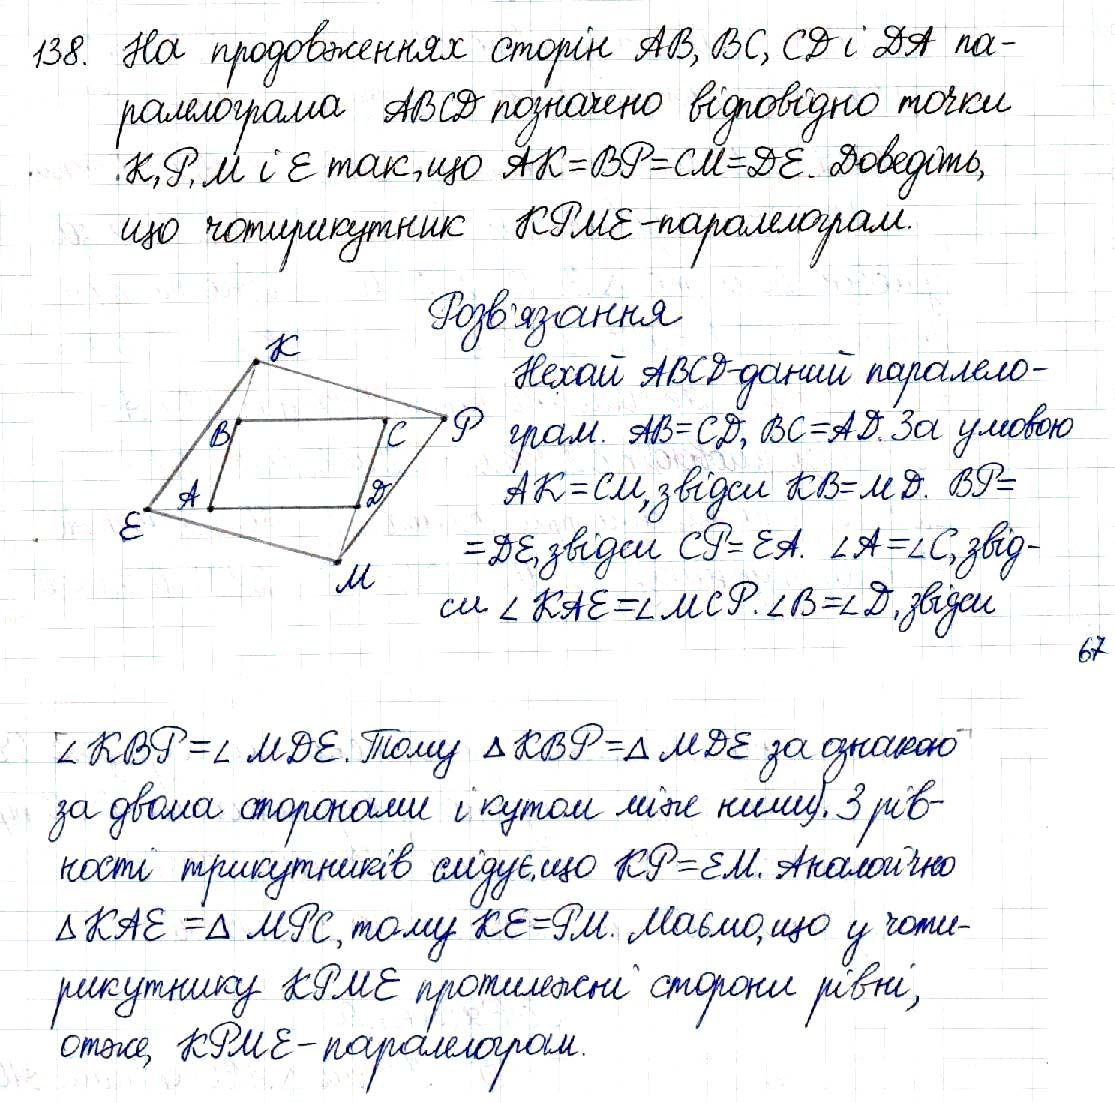 138. На продовженнях сторін AB, BC, CD і DA па-
ралелограма ABCD позначено відповідно точки
K, P, M і E так, що AK=BP=CM=DE. Доведіть,
що чотирикутник KPME-паралелограм.
Розв'язання
K
B
C
P
A
D
E
M
Нехай ABCD-даний парале­ло-
грам. AB=CD, BC=AD. За умовою
AK=CM, звідси KB=MD. BP=
=DE, звідси CP=EA. ∠A=∠C, звід-
си ∠KAE=∠MCP. ∠B=∠D, звідси
67
∠KBP=∠MDE. Тому △KBP=△MDE за ознакою
за двома сторонами і кутом між ними. З рів-
ності трикутників слідує, що KP=EM. Аналогічно
△KAE=△MPC, тому KE=PM. Маємо, що у чоти-
рикутнику KPME протилежні сторони рівні,
отже, KPME-паралелограм.